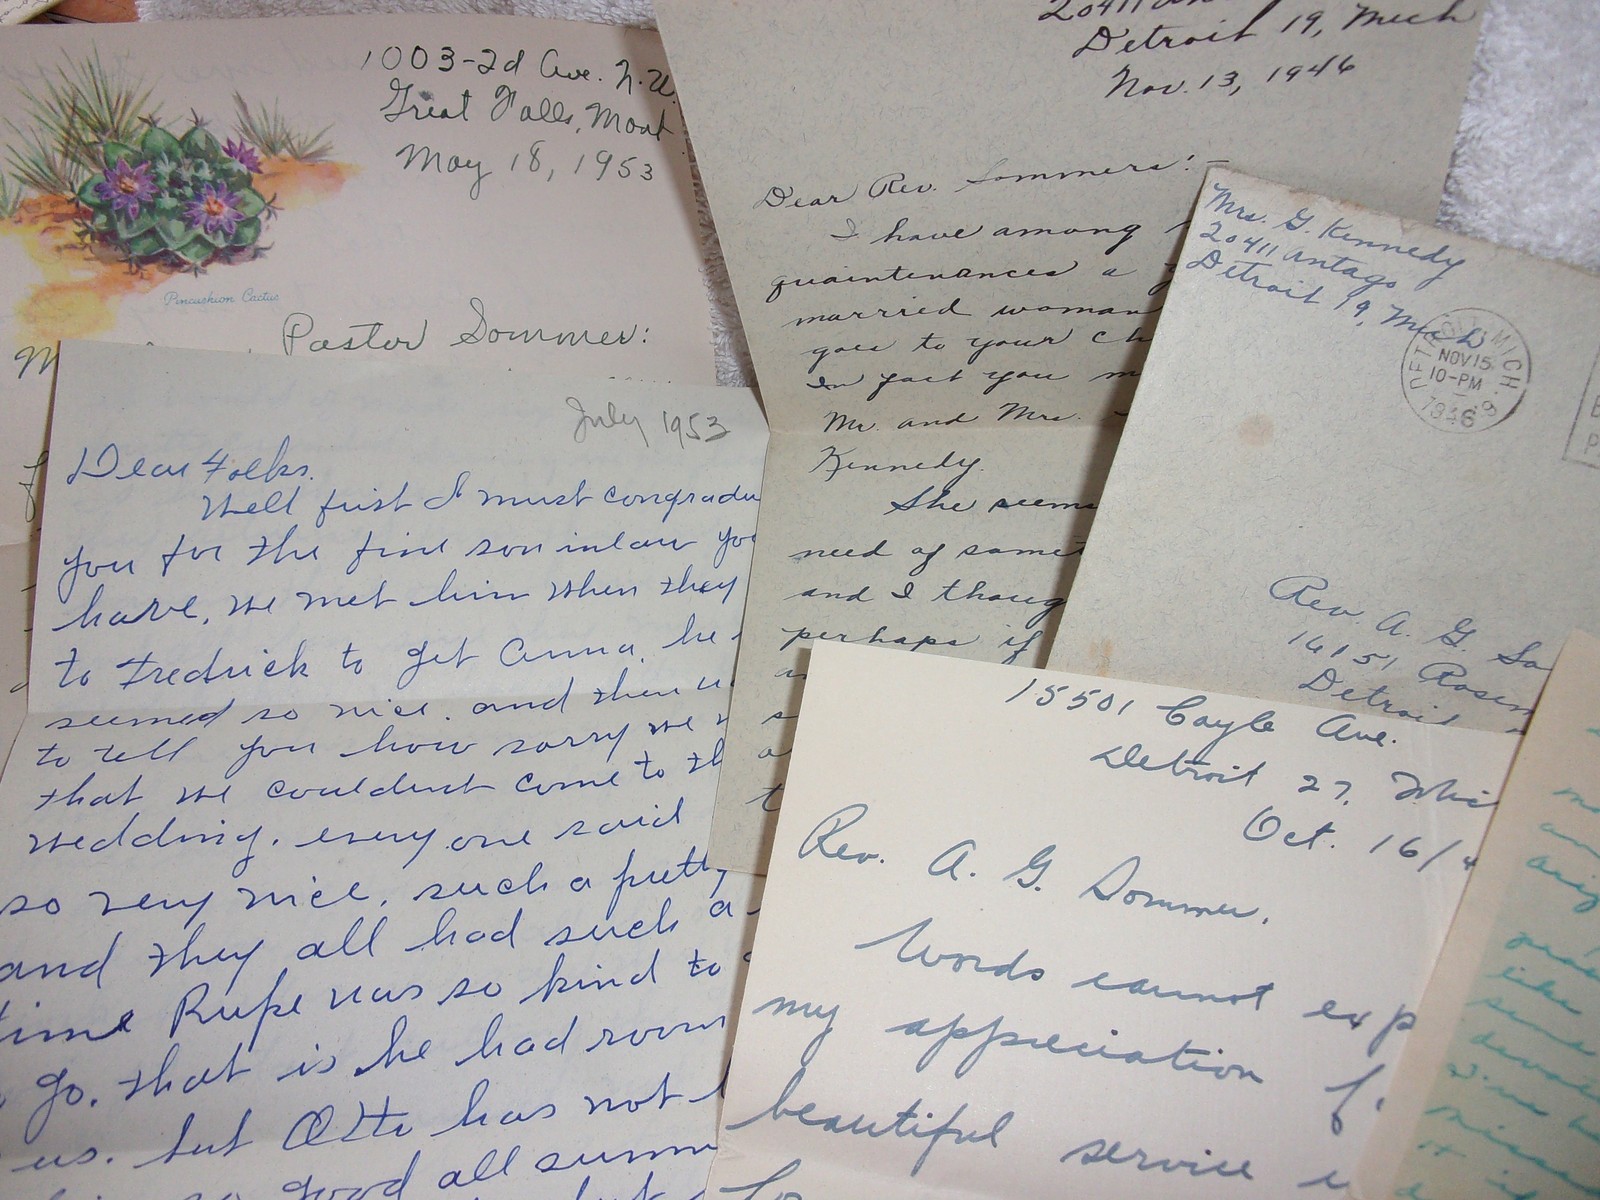 1003-2d Ave. N.W.
Great Falls, Mont
May 18, 1953
Pincushion Cactus
Pastor Sommer:
July 1953
Dear Folks.
Well first I must congradu
you for the fine son inlaw yo
have, we met him when they
to Fredrick to get Anna, he
seemed so nice. and then
to tell you how sorry we
that we couldent come to th
wedding. every one said
so very nice, such a pretty
and they all had such a
time Rupe was so kind to
go. that is he had room
us. but Otto has not
so good all summ
20411
Detroit 19, Mich
Nov. 13, 1946
Dear Rev. Sommers:
I have among
quaintenances a
married woman
goes to your ch
In fact you m
Mr. and Mrs.
Kennedy.
She seems
need of some
and I thoug
perhaps if
Mrs. G. Kennedy
20411 Antago
Detroit 19, Mich
DETROIT, MICH.
NOV 15
10-PM
1946
Rev. A. G. So
16151 Rosem
Detroit
15501 Coyle Ave.
Detroit 27, Mic
Oct. 16/4
Rev. A. G. Sommer.
Words cannot exp
my appreciation f
beautiful service
like